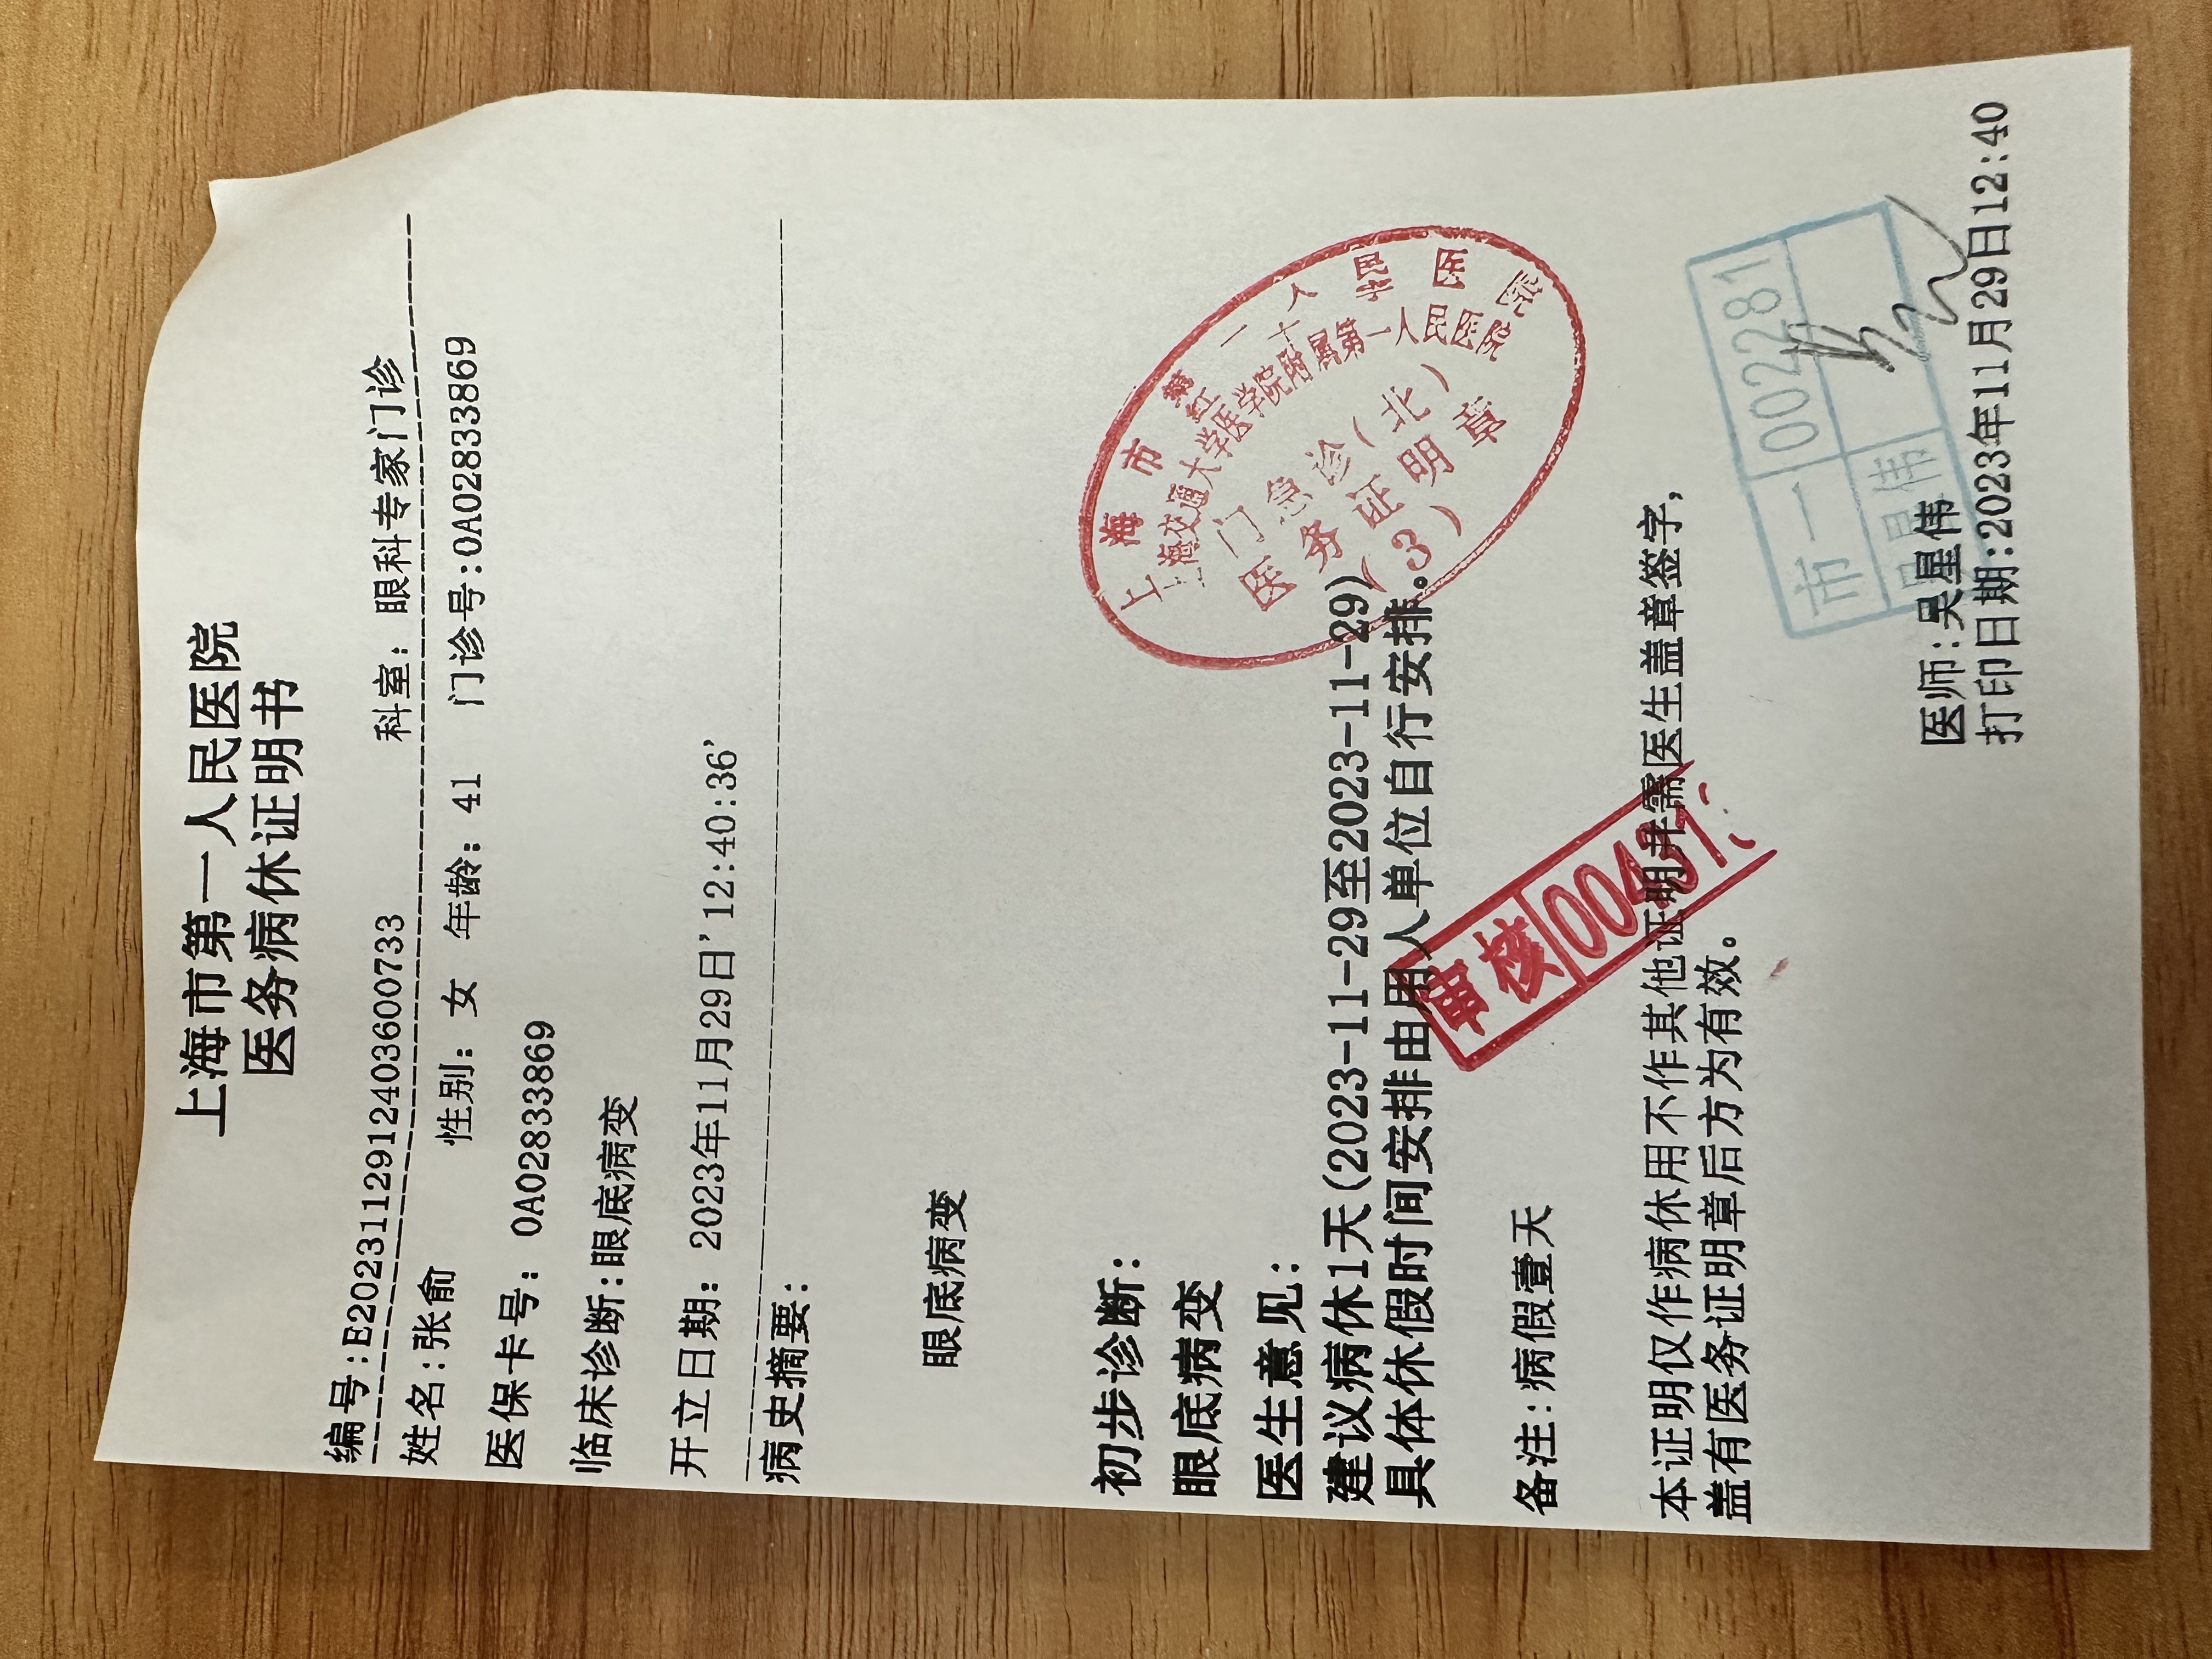 上海市第一人民医院
医务病休证明书
编号:E20231129124036​00733 科室: 眼科专家门诊
姓名:张俞 性别: 女 年龄: 41 门诊号:0A02833869
医保卡号: 0A02833869
临床诊断:眼底病变
开立日期: 2023年11月29日'12:40:36'
病史摘要:
眼底病变
初步诊断:
眼底病变
医生意见:
建议病休1天(2023-11-29至2023-11-29)
具体休假时间安排由用人单位自行安排。
上海市第一人民医院
上海交通大学医学院附属第一人民医院
门急诊(北)
医务证明章
(3)
审核
备注:病假壹天
本证明仅作病休用不作其他证明并需医生盖章签字,
盖有医务证明章后方为有效。
市一 002281
吴星伟
医师:吴星伟
打印日期:2023年11月29日12:40